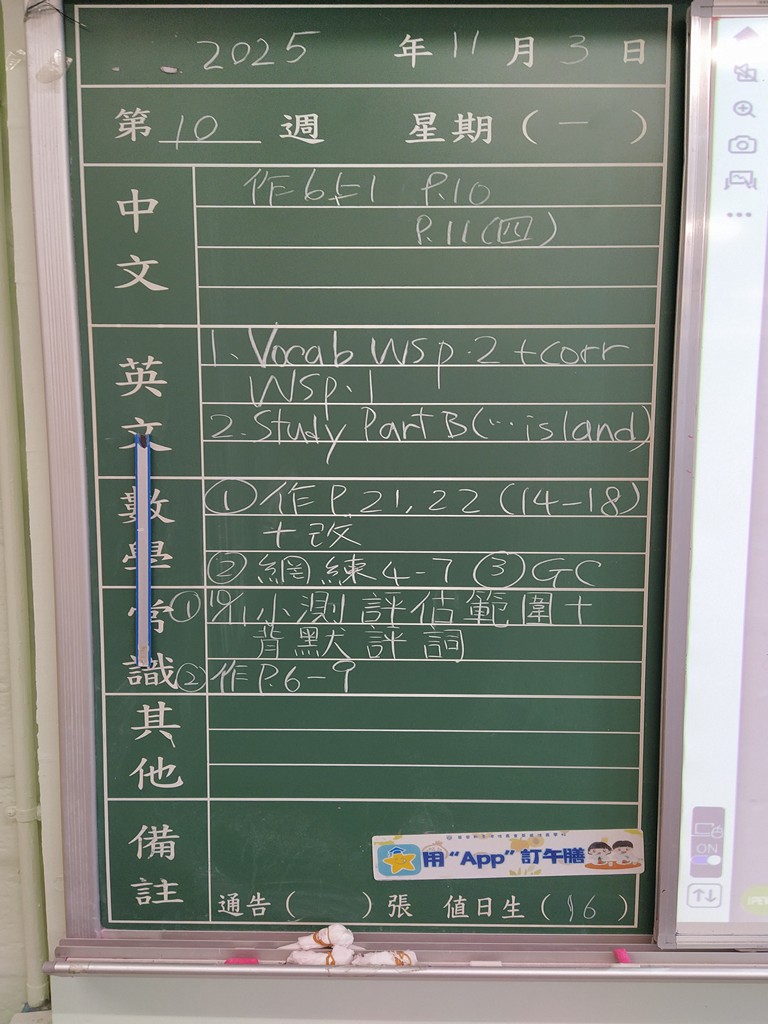 2025 年 11 月 3 日
第 10 週 星期 ( 一 )
中文
作6上1 P.10
P.11(四)
英文
1. Vocab WSp.2 + corr
WSp.1
2. Study Part B(…island)
數學
① 作P.21,22 (14-18)
+改
② 網練4-7 ③ GC
常識
① 19/11小測評估範圍+
背默評詞
② 作P.6-9
其他
備註
用"App"訂午膳
通告 ( ) 張 值日生 ( 16 )
ON